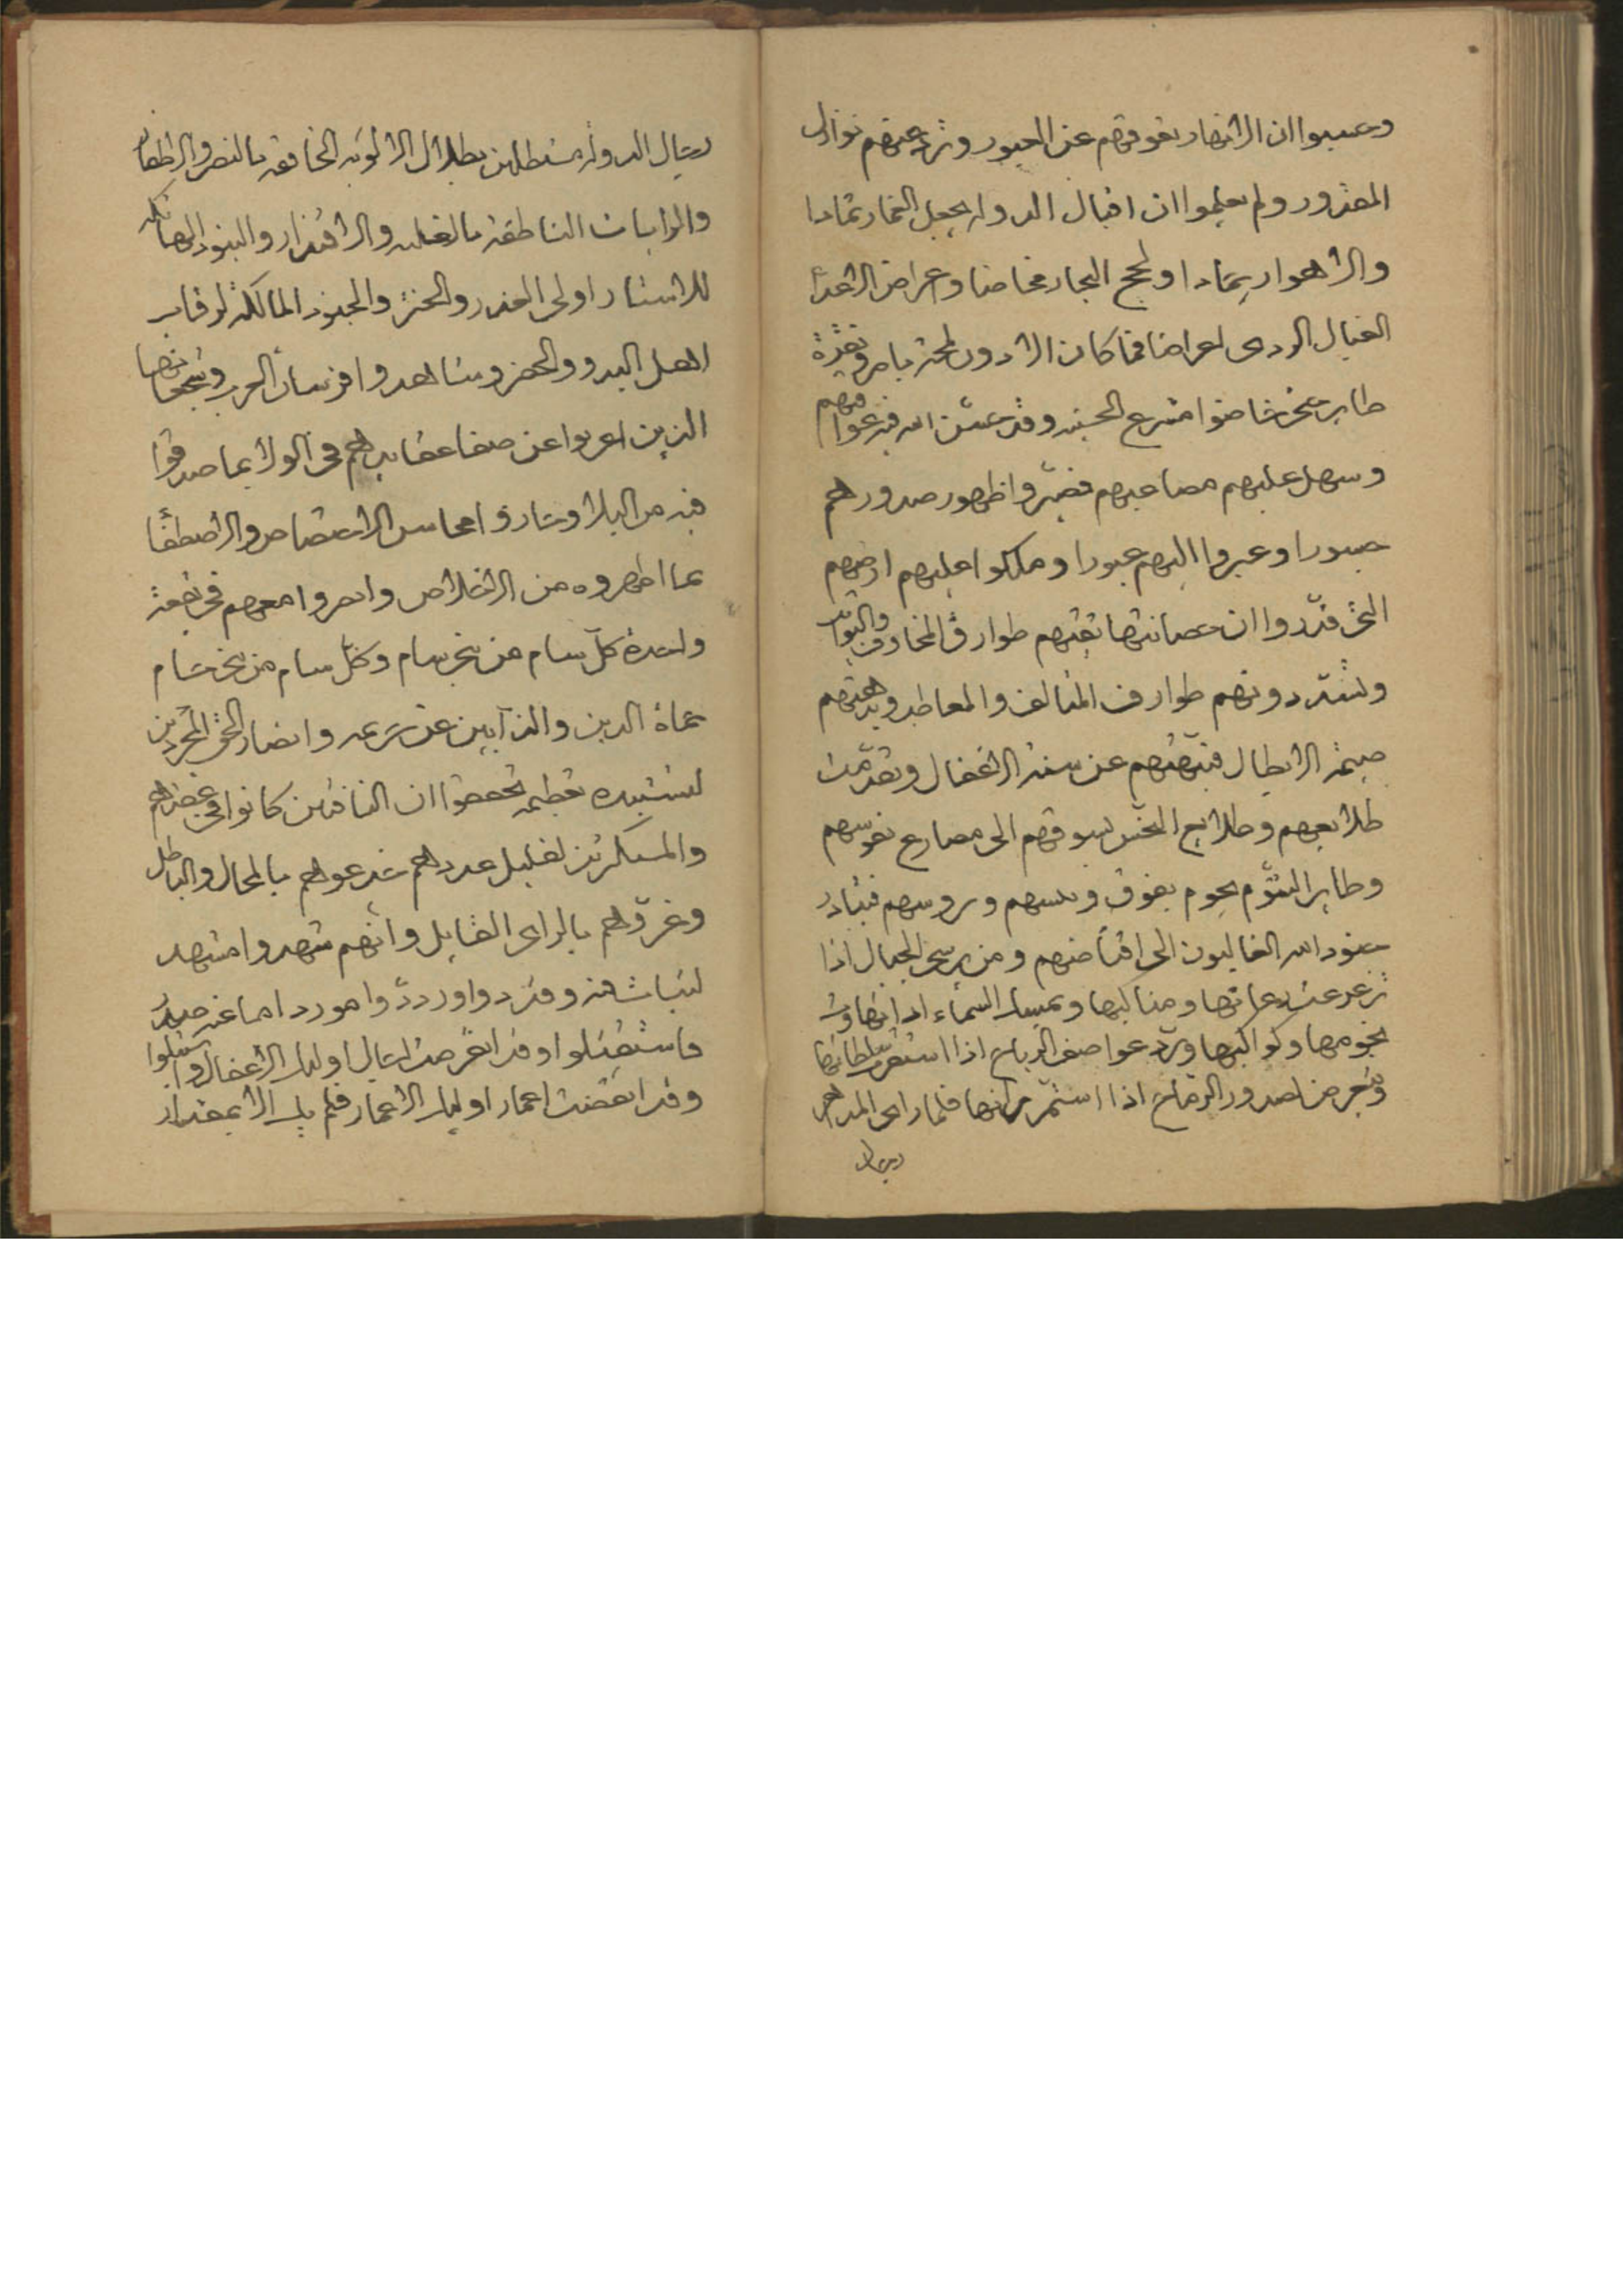 وحسبوا ان الانهار تعوقهم عن العبور وترد عنهم نوازل
المقدور ولم يعلموا ان اقبال الدوله يجعل الغمار ثمادا
والاهوار ثمادا ولجج البحار مخاضا واعراض الاعداء
لغبال الردى اعراضا فما كان الا دون لمحة باصر
طاير حتى خاضوا مترع الحسنه وقد
وسهل عليهم مصاعبهم فصيروا ظهور صدورهم
جسورا وعبروا اليهم عبورا وملكوا عليهم ارضهم
التى قدروا ان حصانتها تقيهم طوارق المخاوف والبوائق
وتشرد دونهم طوارف المتالف والمعاطب
صيحة الابطال فنبهتهم عن سنة الاغفال وتقدمت
طلايعهم وطلايع الحين تسوقهم الى مصارع نفوسهم
وطاير الشوم يحوم بفوق وروسهم فتبادر
جنود الله الغالبون الى اقتناصهم ومن يرسى الجبال اذا
تزعزعت رعانها ومناكبها ويمسك السماء اذا
نجومها وكواكبها ويرد عواصف الرياح اذا استمر سلطانها
ويعرض لصدور الرماح اذا استمر مرانها فلما راى
رجال
رجال الدولة مستظلين بظلال الالويه الخافقه بالنصر والاظفار
والرايات الناطقة بالغلبه والاقتدار والبنود الهاتكه
للاستار اولى الغدر والختر والجنود المالكة لرقاب
اهل البدو والحضر وشاهدوا فرسان العرب وشجعانها
الذين اعربوا عن صفا عقايدهم فى الولا بما صدقوا
فيه من البلا وحازوا محاسن الاختصاص والاصطفا
بما اظهروه من الاخلاص وابصروا معهم فى بقعة
واحدة كل سام من بنى سام وكل حام من بنى حام
حماة الدين والذابين عن شرعه وانصار الحق المجردين
لتشييده تعظيمه تحققوا ان النافثين كانوا فى
والمستكثرين لقليل عددهم خدعوهم بالمحال والباطل
وغروهم بالراى الفايل وانهم شهدوا مشهد
لنباثهم وقد دوا وردوا موردا ما عنه صدر
فاستقتلوا وقد انقرضت اجال اوليك الاغفال
وقد انقضت اعمار اوليك الاغمار فلم يك الا بمقدار